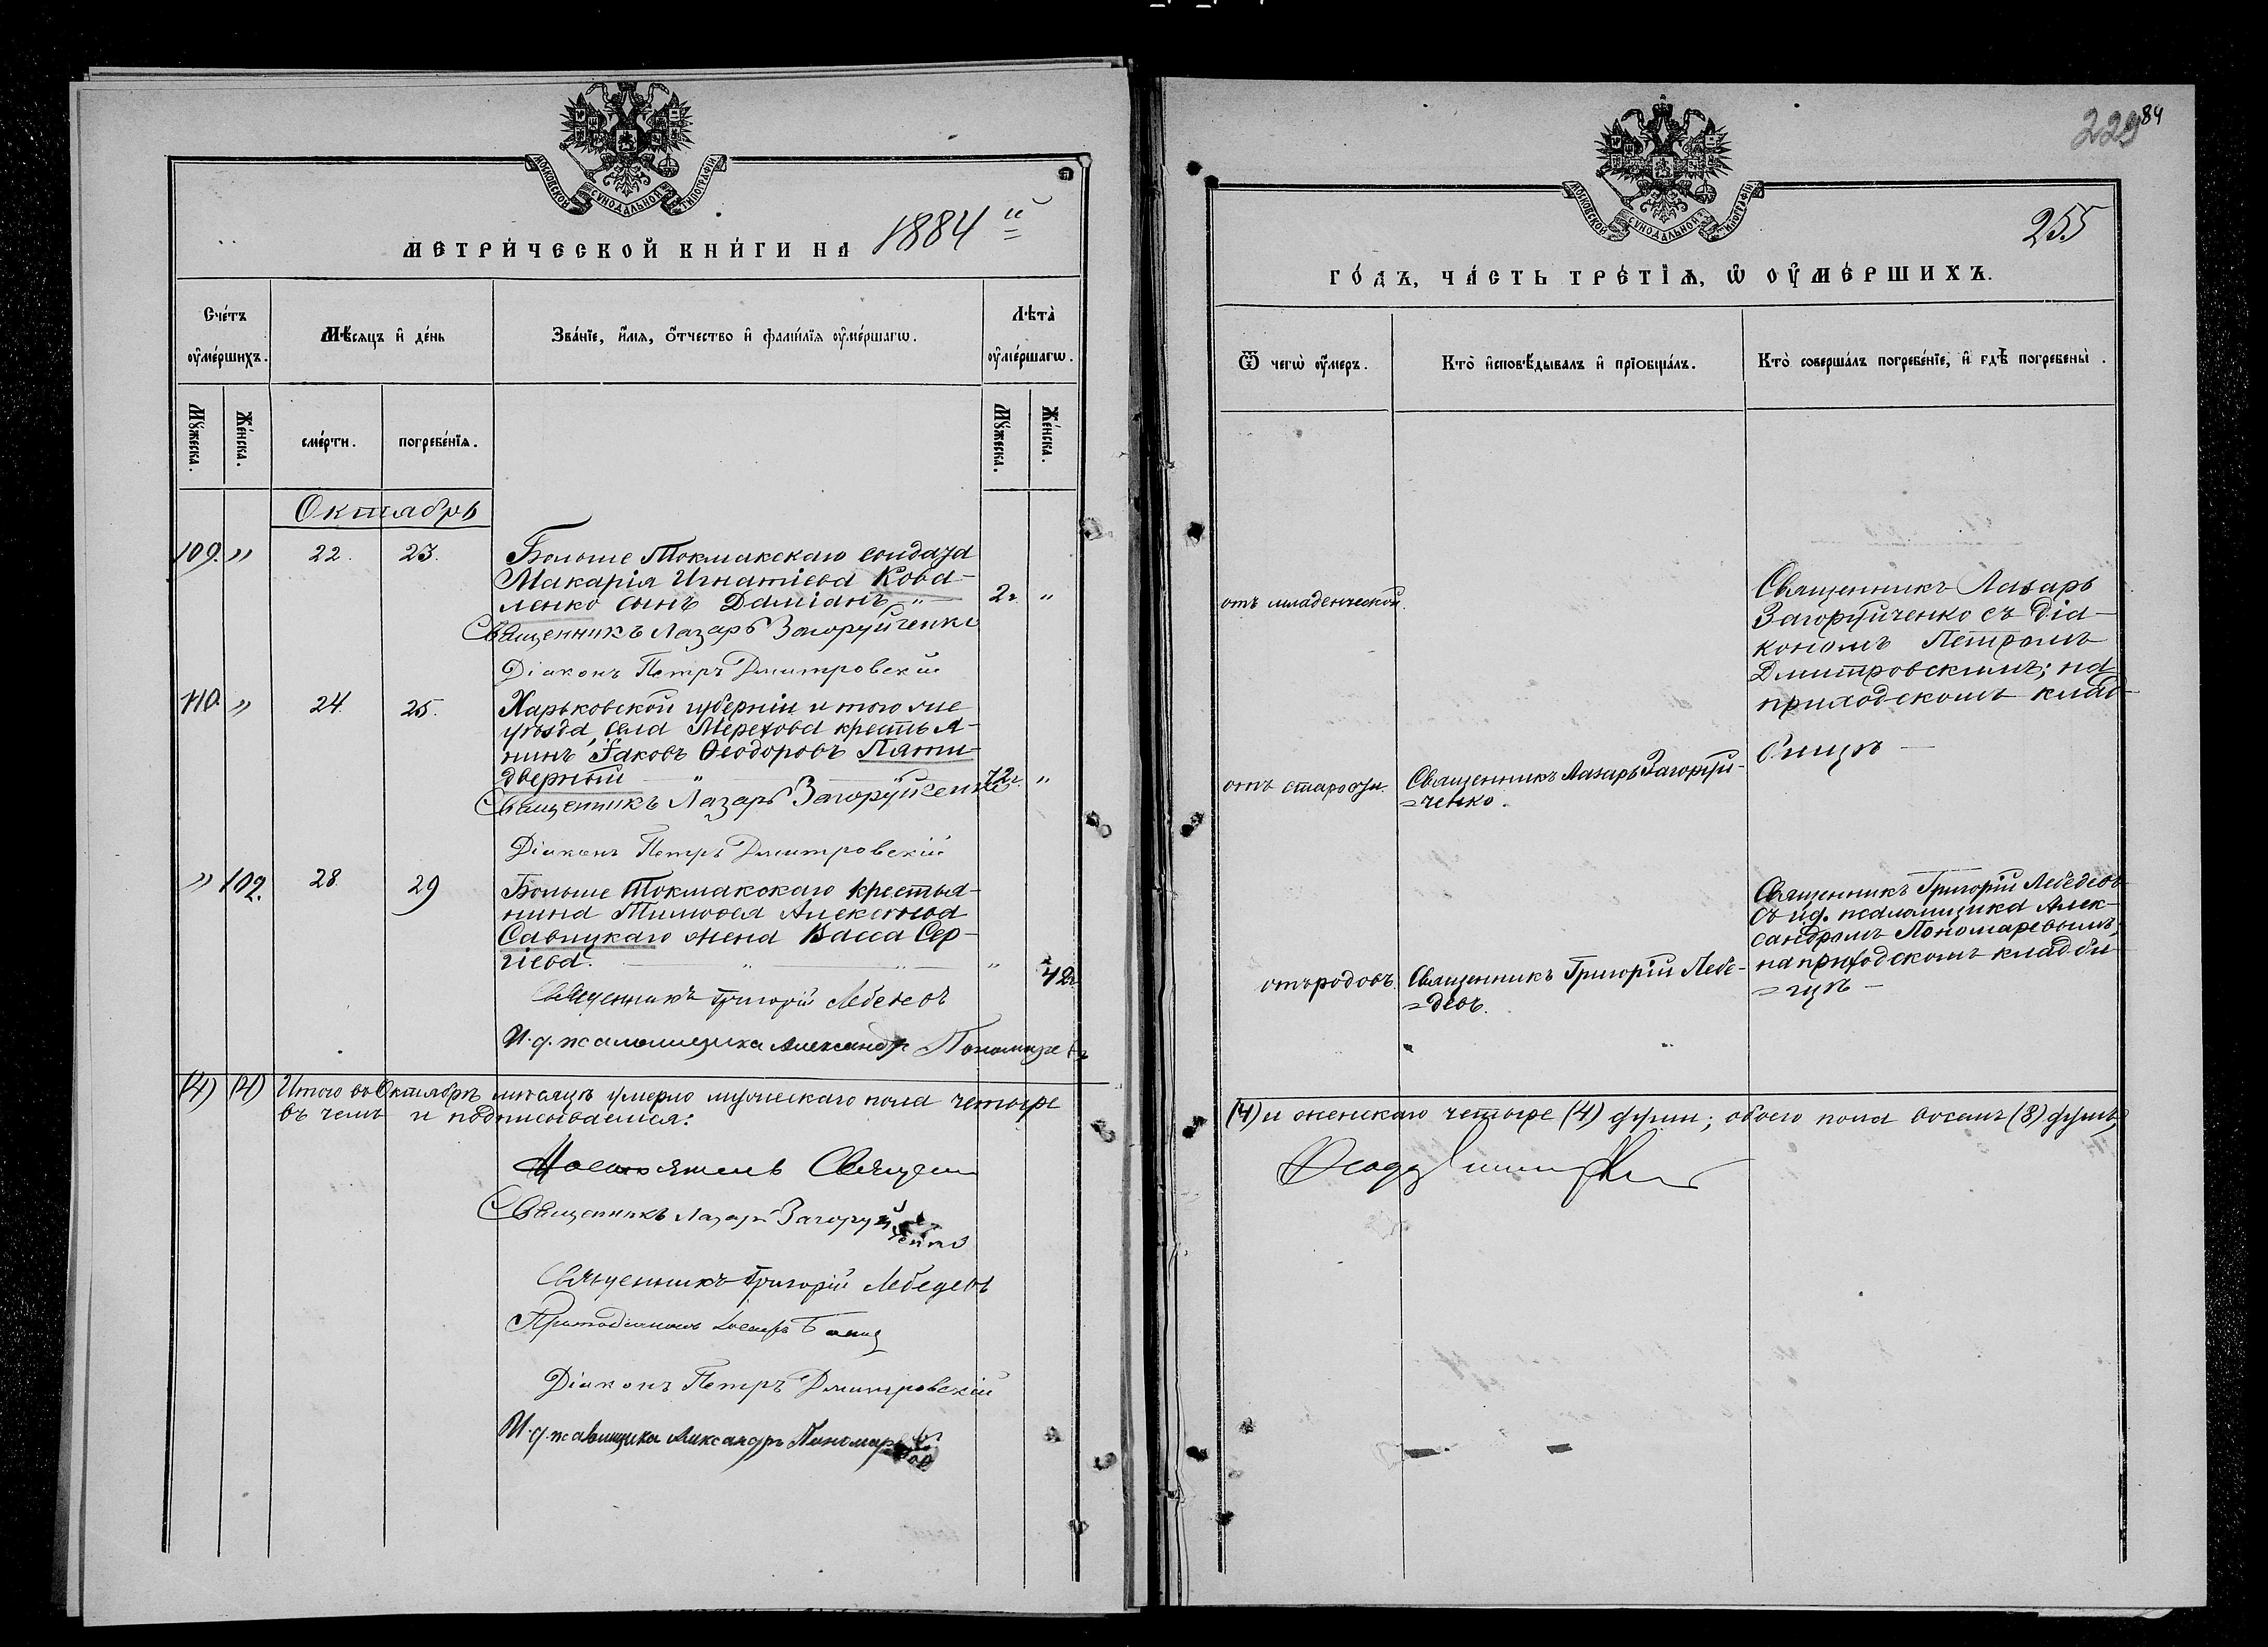 МОСКОВСКОЙ СѴНОДАЛЬНОЙ ТИПОГРАФІИ
МЕТРИ́ЧЕСКОЙ КНИ́ГИ НА 1884й
Сче́тъ оу҆ме́ршихъ.
Мѣ́сяцъ и҆ де́нь
Зва́нїе, и҆́мѧ, ѻ҆́тчество и҆ фами́лїѧ оу҆ме́ршагѡ.
Лѣта̀ оу҆ме́ршагѡ.
Мꙋ́жеска.
Же́нска.
сме́рти.
погребе́нїѧ.
Мꙋ́жеска.
Же́нска.
Октябрь
109. " 22. 23. Больше Токмакскаго солдата
Макарія Игнатіева Кова-
ленко сынъ Даміанъ — " — 2г. "
Священникъ Лазарь Загоруйченко
Діаконъ Петръ Дмитровскій
110. " 24. 25. Харьковской губерніи и того же
уѣзда, села Мерехова крестья-
нинъ Іаковъ Ѳеодоровъ Пяти-
дверный — " — 72г. "
Священникъ Лазарь Загоруйченко
Діаконъ Петръ Дмитровскій
" 102. 28. 29 Больше Токмакскаго крестья-
нина Тимоѳея Алексѣева
Савицкаго жена Васса Сер-
гіева. — " — " 42г.
Священникъ Григорій Лебедевъ
И. д. псаломщика Александръ Пономаревъ
(4) (4) Итого въ Октябрѣ мѣсяцѣ умерло мужескаго пола четыре
въ чемъ и подписываемся:
Настоятель Священ
Священникъ Лазарь Загоруйченко
Священникъ Григорій Лебедевъ
Діаконъ Петръ Дмитровскій
И. д. псаломщика Александръ Пономаревъ
229 84
МОСКОВСКОЙ СѴНОДАЛЬНОЙ ТИПОГРАФІИ
255
ГО́ДЪ, ЧА́СТЬ ТРЕ́ТЇѦ, Ѡ҆ ОУ҆МЕ́РШИХЪ.
Ѿ чегѡ̀ оу҆́меръ.
Кто̀ и҆сповѣ́дывалъ и҆ прїѻбща́лъ.
Кто̀ соверша́лъ погребе́нїе, и҆ гдѣ̀ погребены̀.
отъ младенческой.
Священникъ Лазарь
Загоруйченко съ діа-
кономъ Петромъ
Дмитровскимъ; на
приходскомъ клад-
бищѣ —
отъ старости. Священникъ Лазарь Загоруй-
=ченко.
Священникъ Григорій Лебедевъ
съ и.д. псаломщика Алек-
сандромъ Пономаревымъ,
на приходскомъ кладби-
=щѣ —
отъ родовъ Священникъ Григорій Лебе-
=девъ.
(4) и женскаго четыре (4) души; обоего пола восемь (8) душъ,